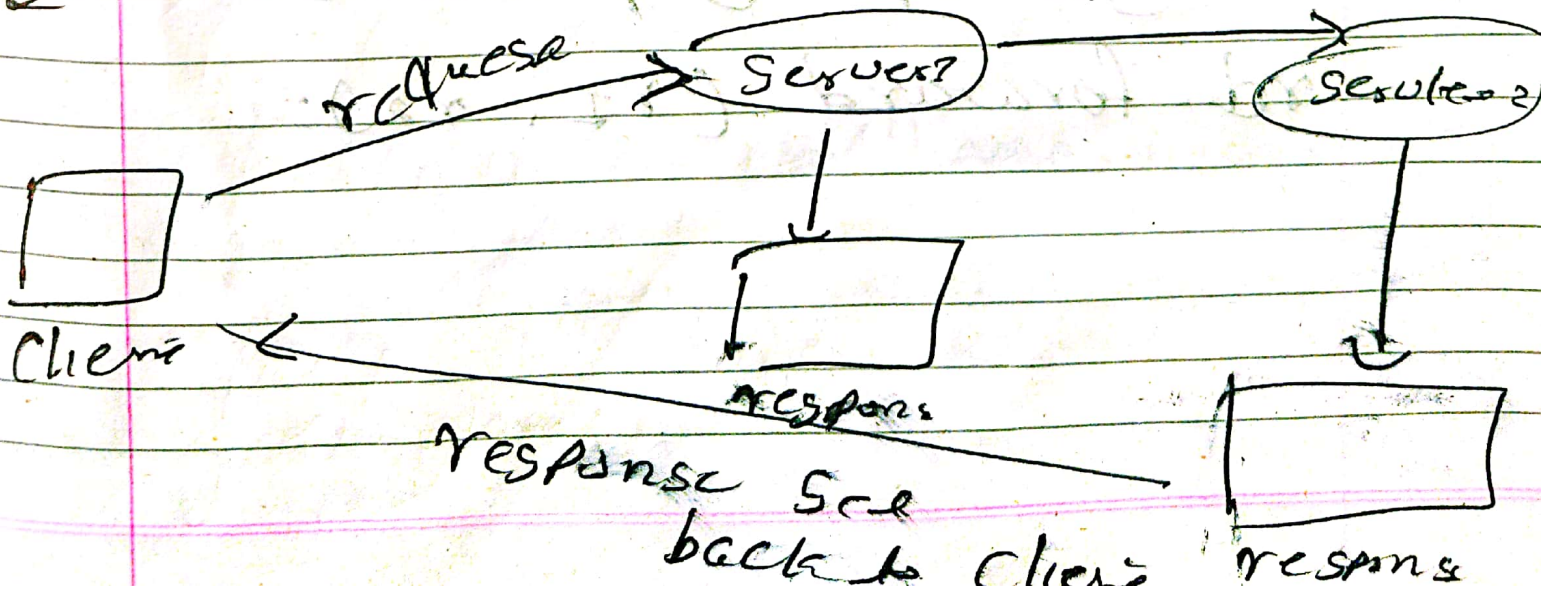 request
server1
servlet-2
Client
respons
response see
back to Client
respons